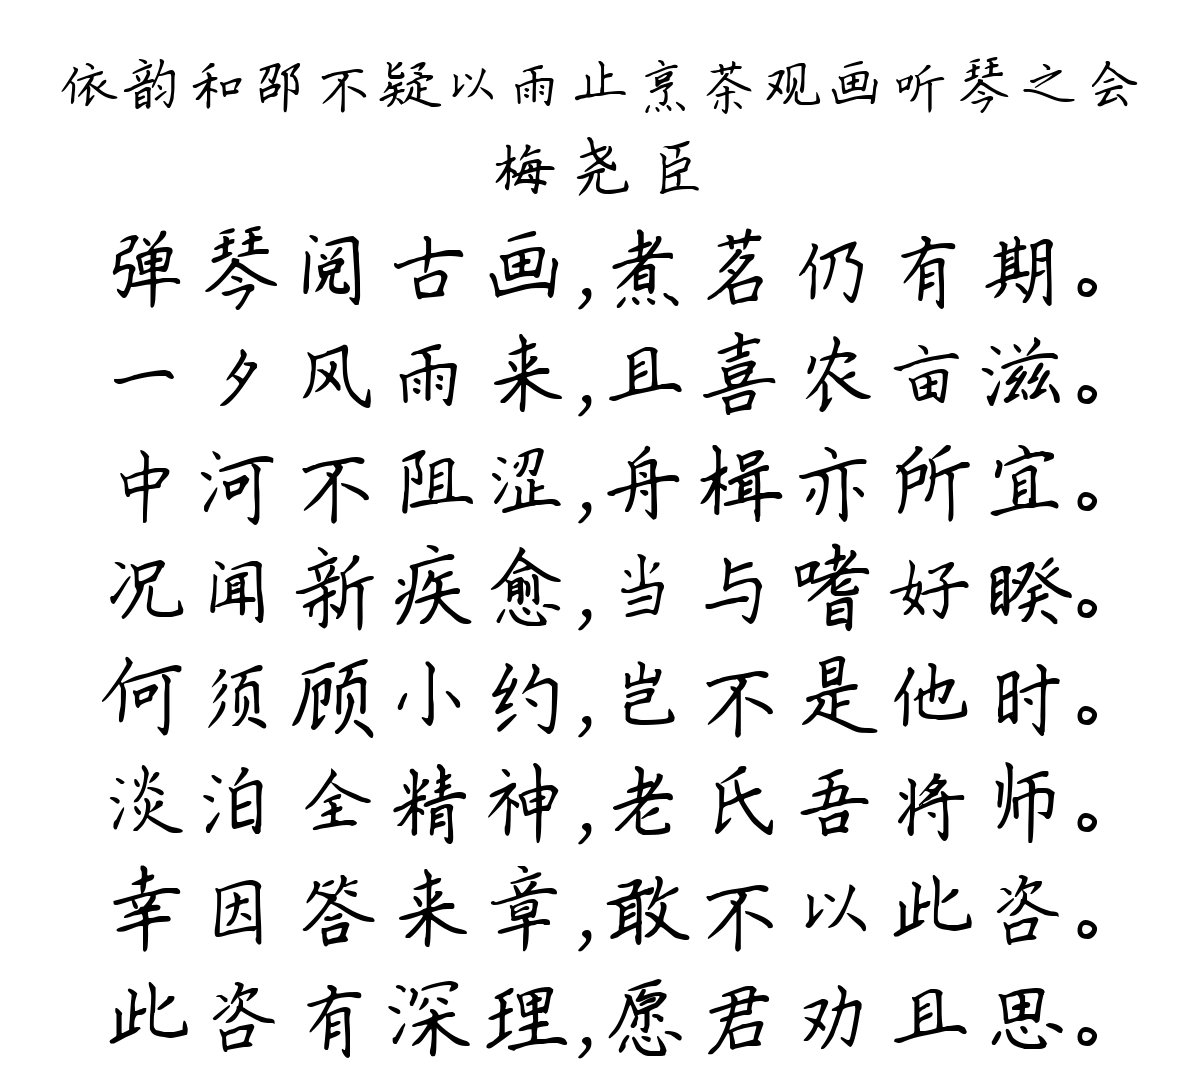 依韵和邵不疑以雨止烹茶观画听琴之会
梅尧臣
弹琴阅古画,煮茗仍有期。
一夕风雨来,且喜农亩滋。
中河不阻涩,舟楫亦所宜。
况闻新疾愈,当与嗜好睽。
何须顾小约,岂不是他时。
淡泊全精神,老氏吾将师。
幸因答来章,敢不以此咨。
此咨有深理,愿君劝且思。